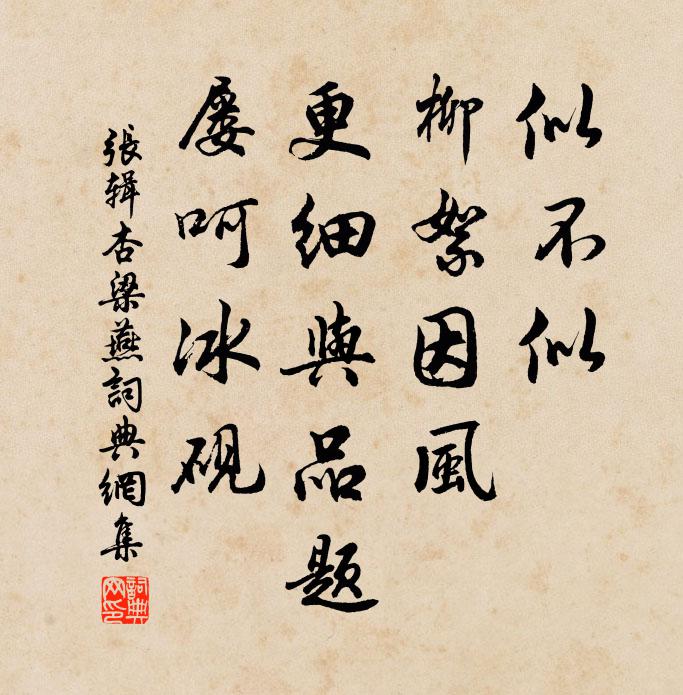 似不似
柳絮因風
更細與品題
屡呵冰硯
張輯杏梁燕詞典網集
詞典網印